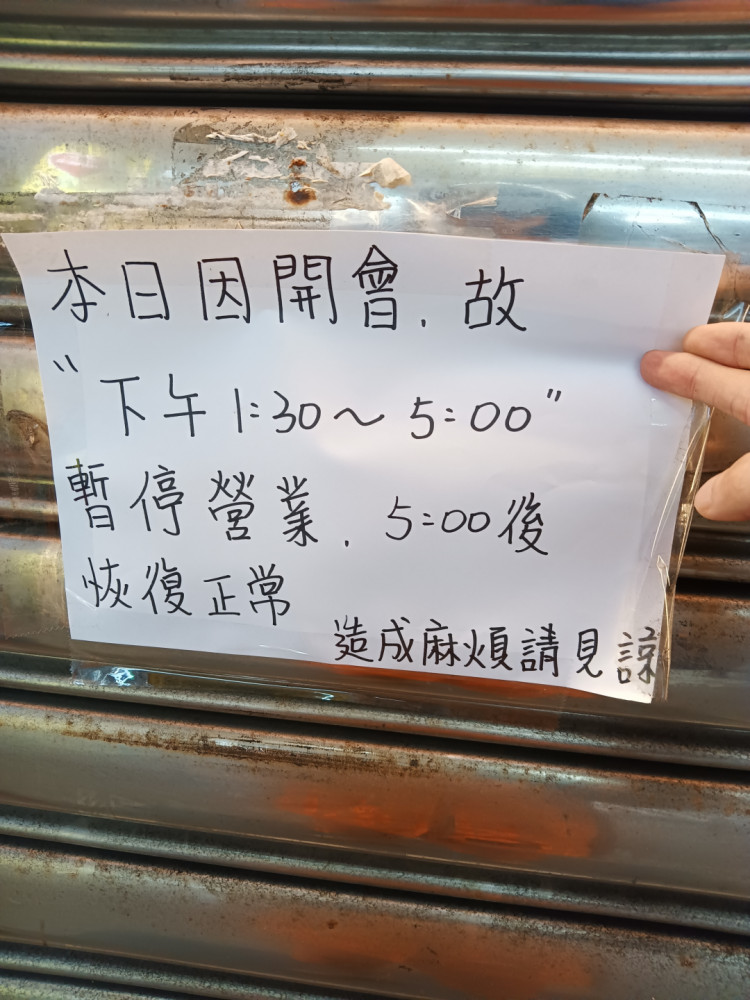 本日因開會.故
"下午1:30~5:00"
暫停營業.5:00後
恢復正常
造成麻煩請見諒